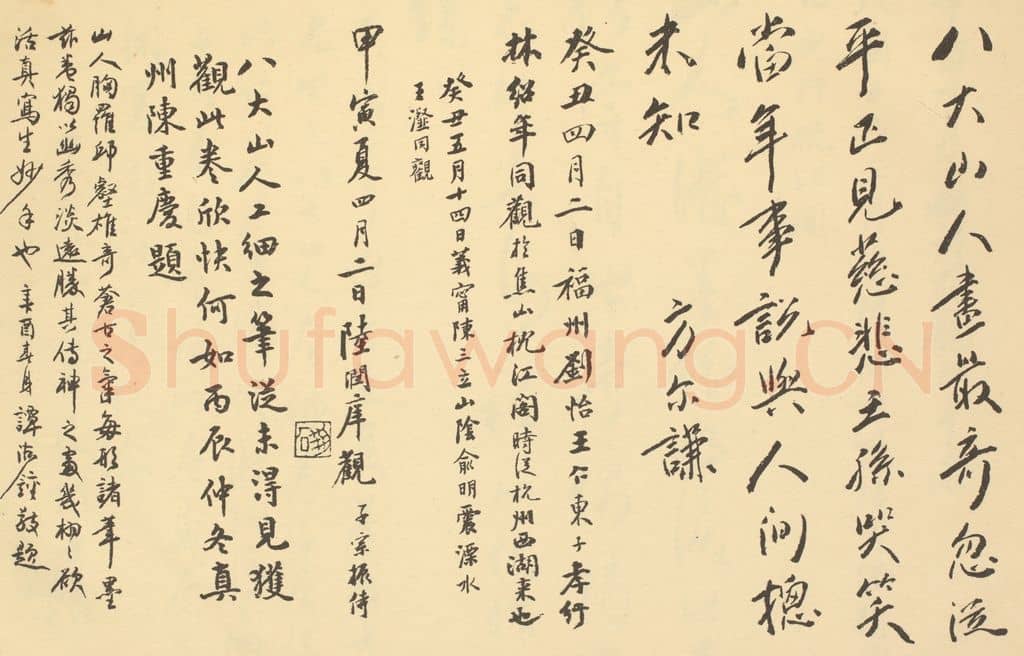 八大山人畫最奇忽從
平正見慈悲王孫哭笑
當年事說與人間總
未知　方尔謙
癸丑四月二日福州劉怡王仁東子孝行
林紹年同觀於焦山枕江閣時從杭州西湖来也
癸丑五月十四日義甯陳三立山陰俞明震溧水
王瀣同觀
甲寅夏四月二日陸潤庠觀 子宗振侍
八大山人工細之筆從未得見獲
觀此卷欣快何如丙辰仲冬真
州陳重慶題
山人胸羅邱壑雄奇蒼古之氣每形諸筆墨
茲卷獨以幽秀淡遠勝其傳神之處幾栩々欲
活真寫生妙手也 辛酉春身譚鍾敬題
Shufawang.CN